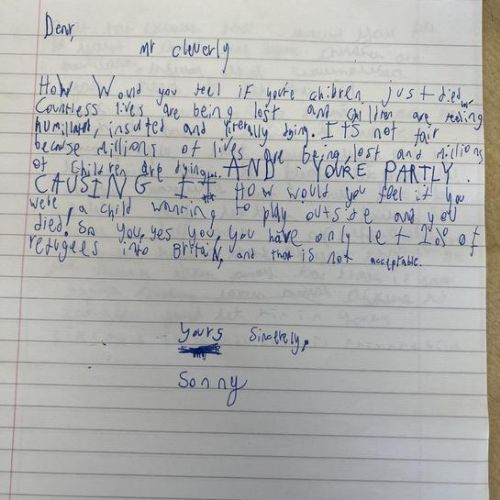 Dear,
Mr cleverly
How Would you feel if you're children just died.
Countless lives are being lost and children are
humiliated, insulted and literally dying. It's not fair
because millions of lives are being lost and millions
of children are dying... AND YOU'RE PARTLY
CAUSING IT How would you feel if you
were a child wanting to play outside and you
died! So you, yes you, you have only let of
refugees into Britain, and that is not acceptable.
Yours Sincerely,
Sonny